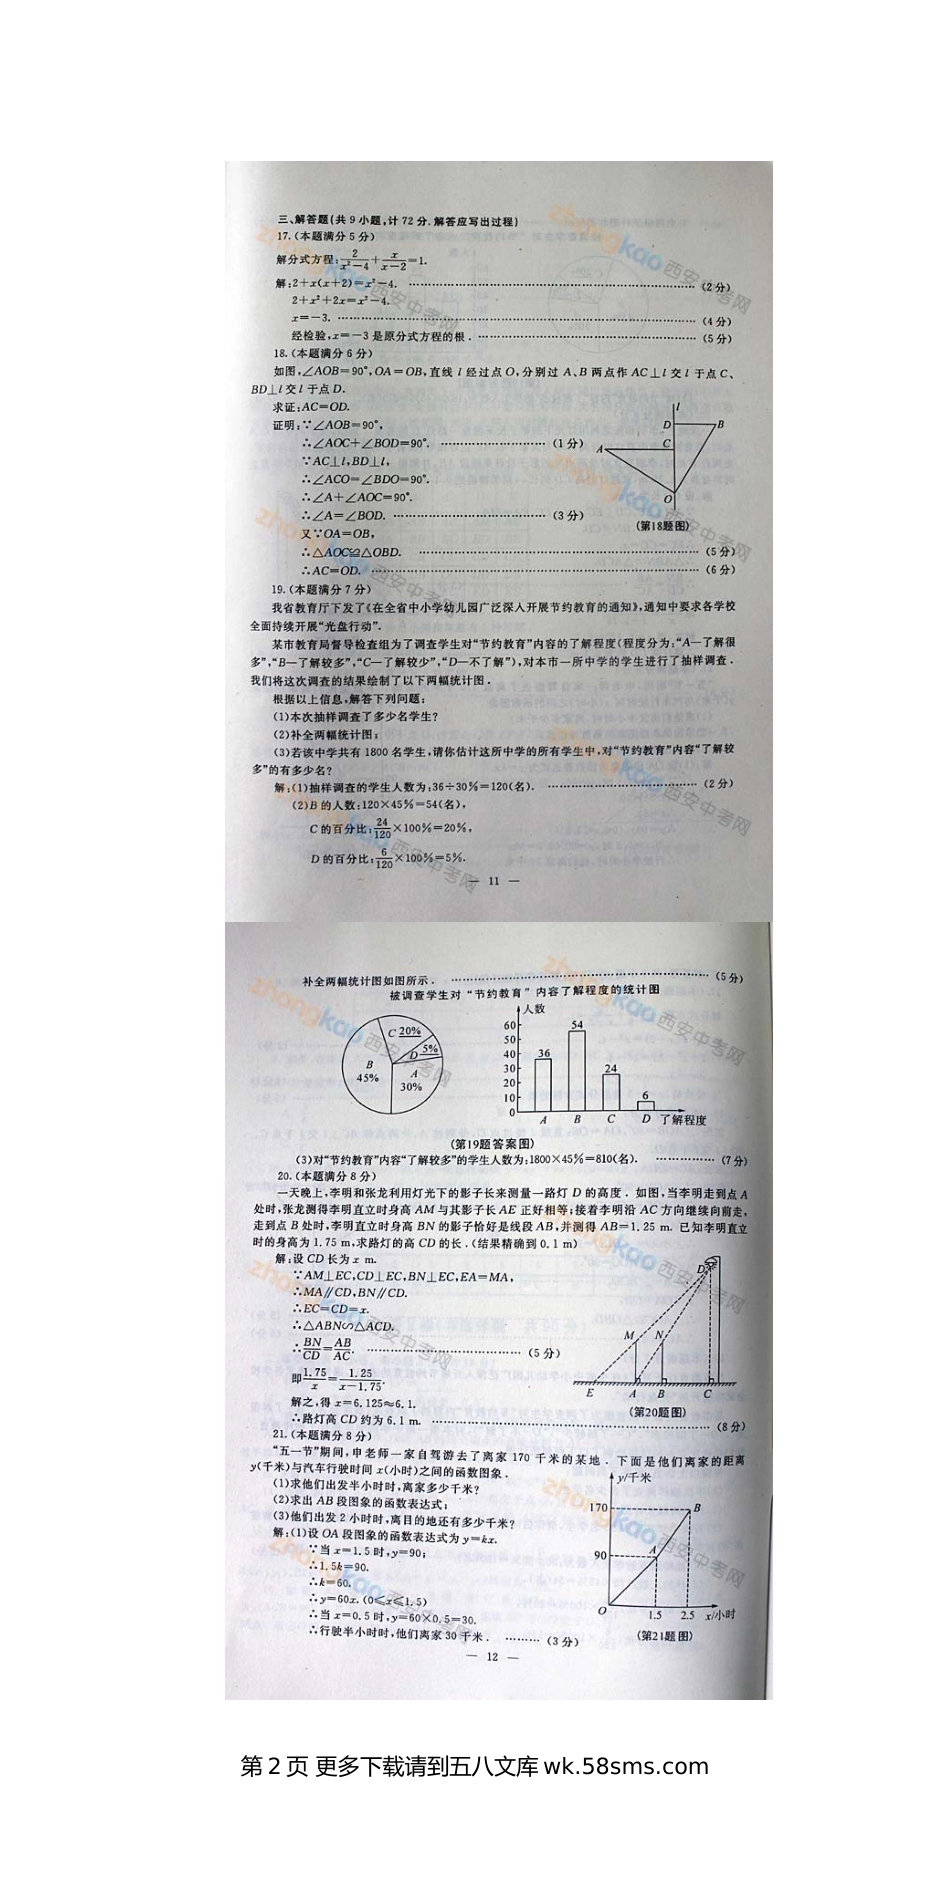 三、解答题(共9小题,计72分.解答应写出过程)
17.(本题满分5分)
解分式方程:2/(x²-4)+x/(x-2)=1.
解:2+x(x+2)=x²-4. ……(2分)
2+x²+2x=x²-4.
x=-3. ……(4分)
经检验,x=-3是原分式方程的根. ……(5分)
18.(本题满分6分)
如图,∠AOB=90°,OA=OB,直线l经过点O,分别过A、B两点作AC⊥l交l于点C、
BD⊥l交l于点D.
求证:AC=OD.
证明:∵∠AOB=90°,
∴∠AOC+∠BOD=90°. ……(1分)
∵AC⊥l,BD⊥l,
∴∠ACO=∠BDO=90°.
∴∠A+∠AOC=90°.
∴∠A=∠BOD. ……(3分)
又∵OA=OB,
∴△AOC≌△OBD. ……(5分)
∴AC=OD. ……(6分)
l
D
B
A
C
O
(第18题图)
19.(本题满分7分)
我省教育厅下发了《在全省中小学幼儿园广泛深入开展节约教育的通知》,通知中要求各学校
全面持续开展“光盘行动”.
某市教育局督导检查组为了调查学生对“节约教育”内容的了解程度(程度分为:“A—了解很
多”,“B—了解较多”,“C—了解较少”,“D—不了解”),对本市一所中学的学生进行了抽样调查.
我们将这次调查的结果绘制了以下两幅统计图.
根据以上信息,解答下列问题:
(1)本次抽样调查了多少名学生?
(2)补全两幅统计图;
(3)若该中学共有1800名学生,请你估计这所中学的所有学生中,对“节约教育”内容“了解较
多”的有多少名?
解:(1)抽样调查的学生人数为:36÷30%=120(名). ……(2分)
(2)B的人数:120×45%=54(名),
C的百分比:24/120×100%=20%,
D的百分比:6/120×100%=5%.
— 11 —
补全两幅统计图如图所示. ……(5分)
被调查学生对“节约教育”内容了解程度的统计图
C 20%
D 5%
B
45%
A
30%
人数
60
50
40
30
20
10
0
36
54
24
6
A B C D 了解程度
(第19题答案图)
(3)对“节约教育”内容“了解较多”的学生人数为:1800×45%=810(名). ……(7分)
20.(本题满分8分)
一天晚上,李明和张龙利用灯光下的影子长来测量一路灯D的高度.如图,当李明走到点A
处时,张龙测得李明直立时身高AM与其影子长AE正好相等;接着李明沿AC方向继续向前走,
走到点B处时,李明直立时身高BN的影子恰好是线段AB,并测得AB=1.25 m.已知李明直立
时的身高为1.75 m,求路灯的高CD的长.(结果精确到0.1 m)
解:设CD长为x m.
∵AM⊥EC,CD⊥EC,BN⊥EC,EA=MA,
∴MA∥CD,BN∥CD.
∴EC=CD=x.
∴△ABN∽△ACD.
∴BN/CD=AB/AC. ……(5分)
即1.75/x=1.25/(x-1.75).
解之,得x=6.125≈6.1.
∴路灯高CD约为6.1 m. ……(8分)
D
M N
E A B C
(第20题图)
21.(本题满分8分)
“五一节”期间,申老师一家自驾游去了离家170千米的某地.下面是他们离家的距离
y(千米)与汽车行驶时间x(小时)之间的函数图象.
(1)求他们出发半小时时,离家多少千米?
(2)求出AB段图象的函数表达式;
(3)他们出发2小时时,离目的地还有多少千米?
解:(1)设OA段图象的函数表达式为y=kx.
∵当x=1.5时,y=90;
∴1.5k=90.
∴k=60.
∴y=60x.(0≤x≤1.5)
∴当x=0.5时,y=60×0.5=30.
∴行驶半小时时,他们离家30千米. ……(3分)
y/千米
170
B
90
A
O
1.5 2.5 x/小时
(第21题图)
— 12 —
zhongkao西安中考网
第 2 页 更多下载请到五八文库 wk.58sms.com